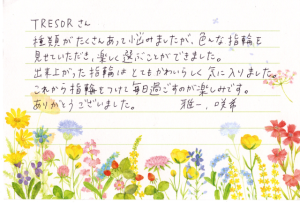 TRESORさん
種類がたくさんあって悩みましたが、色んな指輪を
見せていただき、楽しく選ぶことができました。
出来上がった指輪はとてもかわいらしく気に入りました。
これから指輪をつけて毎日過ごすのが楽しみです。
ありがとうございました。 雅一、咲希